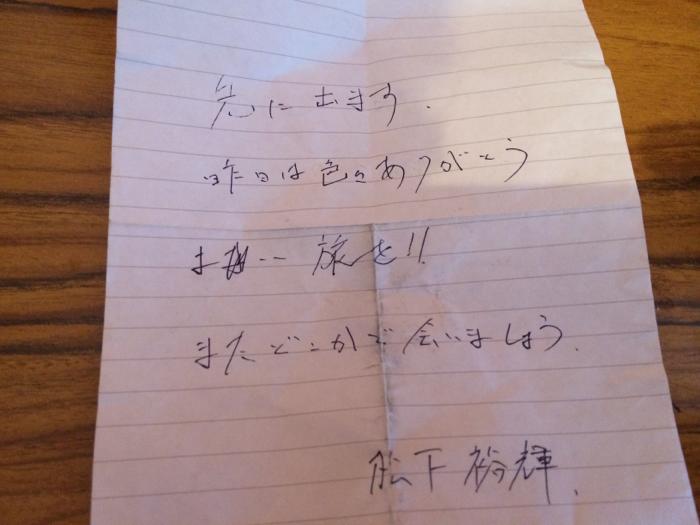 先に出ます.
昨日は色々ありがとう
よい旅を!!
またどこかで会いましょう.
下 裕輝.